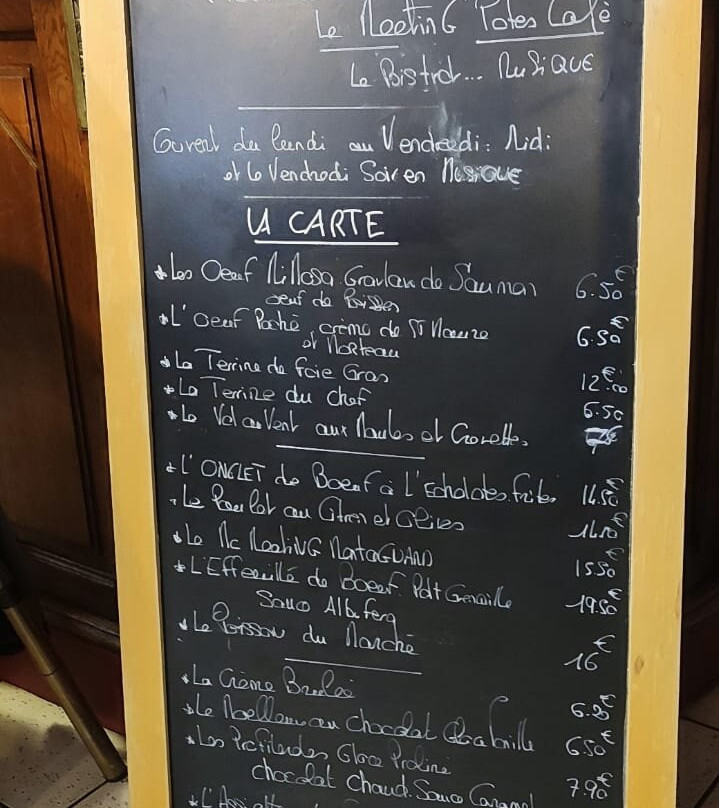 Le Meeting Potes Café
Le Bistrot... MuSiQUE
Ouvert du Lundi au Vendredi: Midi
et le Vendredi Soir en Musique
LA CARTE
* Les Oeuf Mimosa Gravlax de Saumon 6.50€
oeuf de Poisson
* L'oeuf Poché, crème de St Maure 6.50€
et Morteau
* La Terrine de foie Gras 12€.00
* La Terrine du Chef 6.50
* Le Vol au Vent aux Moules et Crevettes 7€
* L'ONGLET de Boeuf à L'Echalotes. frites 14.50€
* Le Poulet au Citron et Olives 14.50€
* Le Mc MeetiNG MontaGNARD 15.50€
* L'Effeuillé de Boeuf. Pdt Grenaille 19.50€
Sauce Albufera
* Le Poisson du Marché 16€
* La Crème Brulée 6.20€
* Le Moelleux au chocolat Glace Vanille 6.50€
* Les Profiteroles Glace Praline
chocolat Chaud. Sauce Caramel 7.90€
* L'Assiette